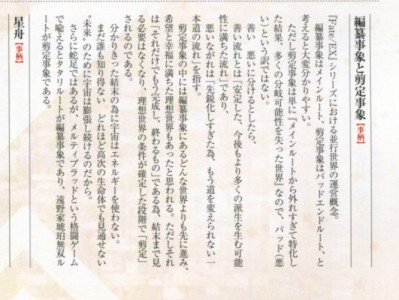 編纂事象と剪定事象【事柄】
『Fate/EX』シリーズにおける並行世界の運営概念。
編纂事象はメインルート、剪定事象はバッドエンドルート、と
考えると大変分かりやすい。
ただし剪定事象は単に『メインルートから外れすぎて特化し
た結果、多くの分岐可能性を失った世界』なので、バッド(悪
い)という訳ではない。
善い、悪いに分けるとしたら、
善い流れとは「安定した、今後もより多くの派生を生む可能
性に満ちた流れ」であり、
悪いながれは「先鋭化しすぎた為、もう道を変えられない一
本道の流れ」を指す。
剪定事象の中には編纂事象にあるどんな世界よりも先に進み、
希望と幸福に満ちた理想世界もあったと思われる。ただしそれ
は「それだけでもう完成し、終わるもの」である為、結末まで見
る必要はなくなり、理想世界の条件が確定した段階で「剪定」
されるのである。
分かりきった結末の為に宇宙はエネルギーを使わない。
まだ誰も知り得ない、どれほど高次の生命体でも見通せない
“未来”のために宇宙は膨張し続けるのだから。
さらに蛇足ではあるが、メルティブラッドという格闘ゲーム
で喩えるとタタリルートが編纂事象であり、遠野家琥珀無双ル
ートが剪定事象である。
星舟【事柄】